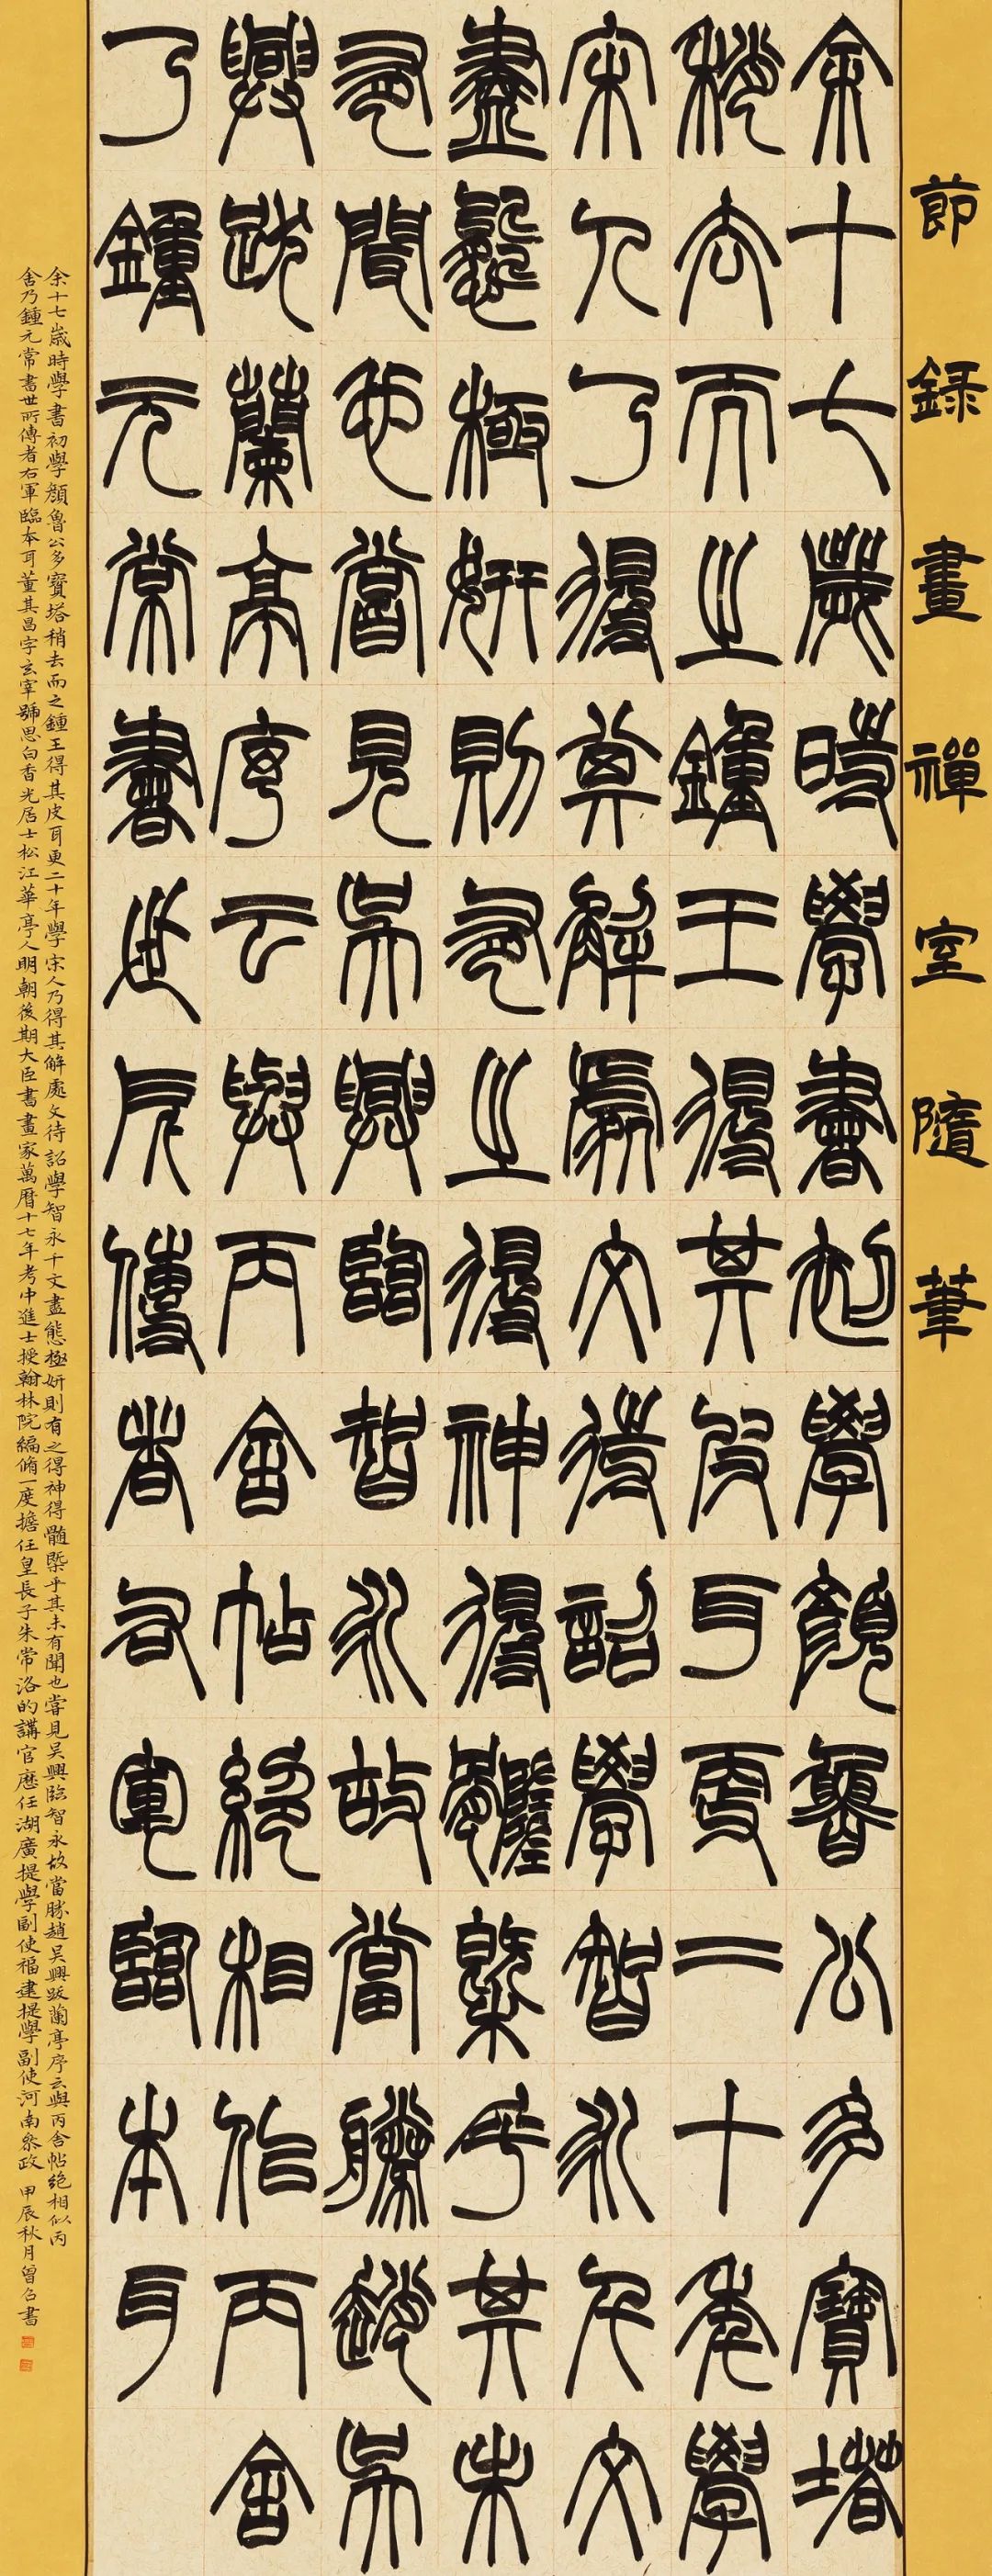 節錄畫禪室隨筆
余十七歲時學書初學顏魯公多寶塔
稍去而之鍾王得其皮耳更二十年學
宋人乃得其解處文待詔學智永千文
盡態極妍則有之得神得髓槩乎其未
有聞也嘗見吳興臨智永故當勝趙吳
興跋蘭亭序云與丙舍帖絕相似丙舍
乃鍾元常書世所傳者右軍臨本耳
余十七歲時學書初學顏魯公多寶塔稍去而之鍾王得其皮耳更二十年學宋人乃得其解處文待詔學智永千文盡態極妍則有之得神得髓槩乎其未有聞也嘗見吳興臨智永故當勝趙吳興跋蘭亭序云與丙舍帖絕相似丙
舍乃鍾元常書世所傳者右軍臨本耳董其昌字玄宰號思白香光居士松江華亭人明朝後期大臣書畫家萬曆十七年考中進士授翰林院編脩一度擔任皇長子朱常洛的講官歷任湖廣提學副使福建提學副使河南參政 甲辰秋月曾名書